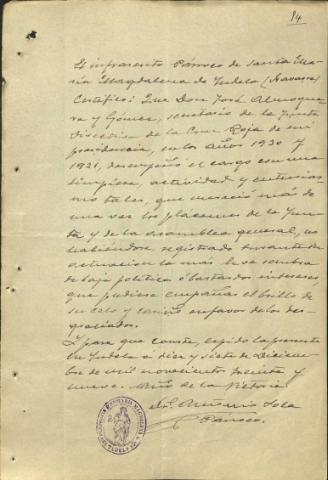 14
El infrascrito Párroco de Santa Ma-
ría Magdalena de Tudela (Navarra)
Certifico: Que Don José Almoque-
ra y Gómez, secretario de la Junta
Directiva de la Cruz Roja de mi
presidencia, en los años 1930 y
1931, desempeñó el cargo con una
limpieza, actividad y entusias
mo tales, que mereció más de
una vez los plácemes de la Jun-
ta y de la asamblea general, no
habiéndose registrado durante su
actuación la más leve sombra
de baja política ó bastardos intereses,
que pudiese empañar el brillo de
su celo y cariño en favor de los des-
graciados.
Y para que conste, expido la presente
en Tudela a diez y siete de Diciem-
bre de mil novecientos treinta y
nueve. Año de la Victoria.
Antonio Sola
Párroco.